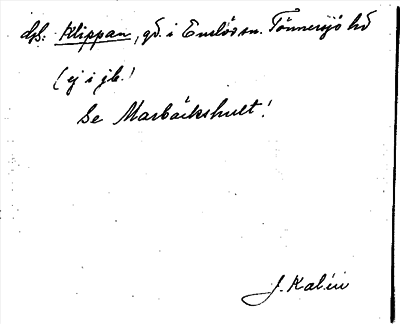 dss: Klippan, gd. i Enslövs sn. Tönnersjö hd
(ej i jb.!
Se Marbäckshult!
J. Kalén